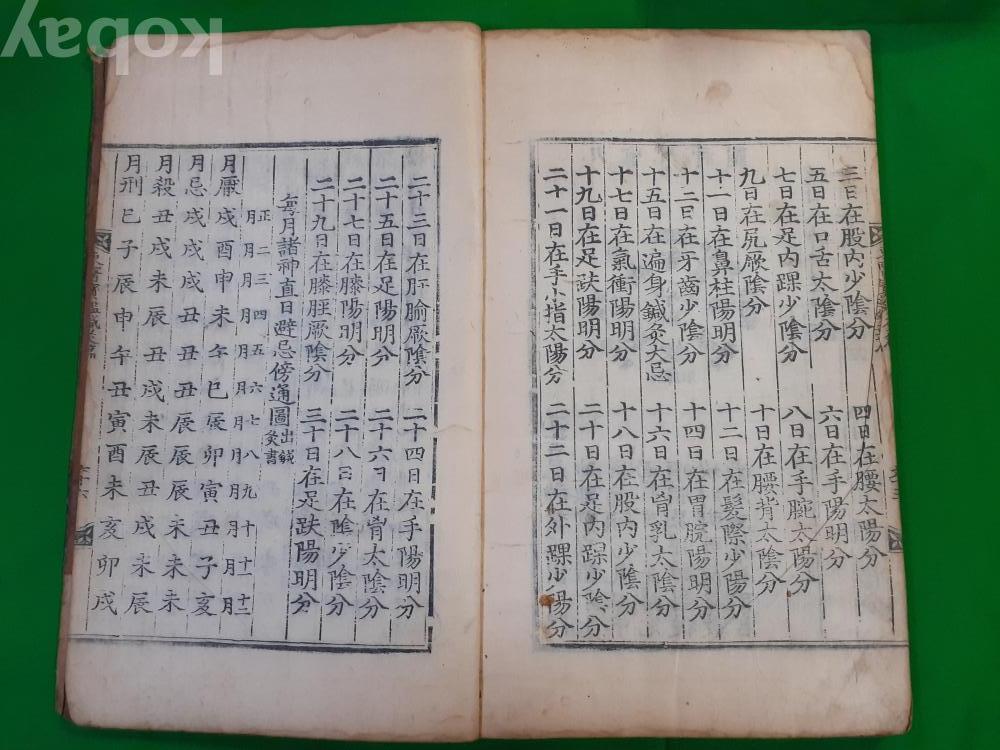 kobay
三日在股內少陰分 四日在腰太陽分
五日在口舌太陰分 六日在手陽明分
七日在足內踝少陰分 八日在手腕太陽分
九日在尻厥陰分 十日在腰背太陰分
十一日在鼻柱陽明分 十二日在髮際少陽分
十三日在牙齒少陰分 十四日在胃脘陽明分
十五日在遍身鍼灸大忌 十六日在胷乳太陰分
十七日在氣衝陽明分 十八日在股內少陰分
十九日在足趺陽明分 二十日在足內踝少陰分
二十一日在手小指太陽分 二十二日在外踝少陽分
二十三日在肝腧厥陰分 二十四日在手陽明分
二十五日在足陽明分 二十六日在胷太陰分
二十七日在膝陽明分 二十八日在陰少陰分
二十九日在膝脛厥陰分 三十日在足趺陽明分
每月諸神直日避忌傍通圖 出鍼灸書
正月 二月 三月 四月 五月 六月 七月 八月 九月 十月 十一月 十二月
月厭 戌酉申未午巳辰卯寅丑子亥
月忌 戌戌戌丑丑丑辰辰辰未未未
月殺 丑戌未辰丑戌未辰丑戌未辰
月刑 巳子辰申午丑寅酉未亥卯戌